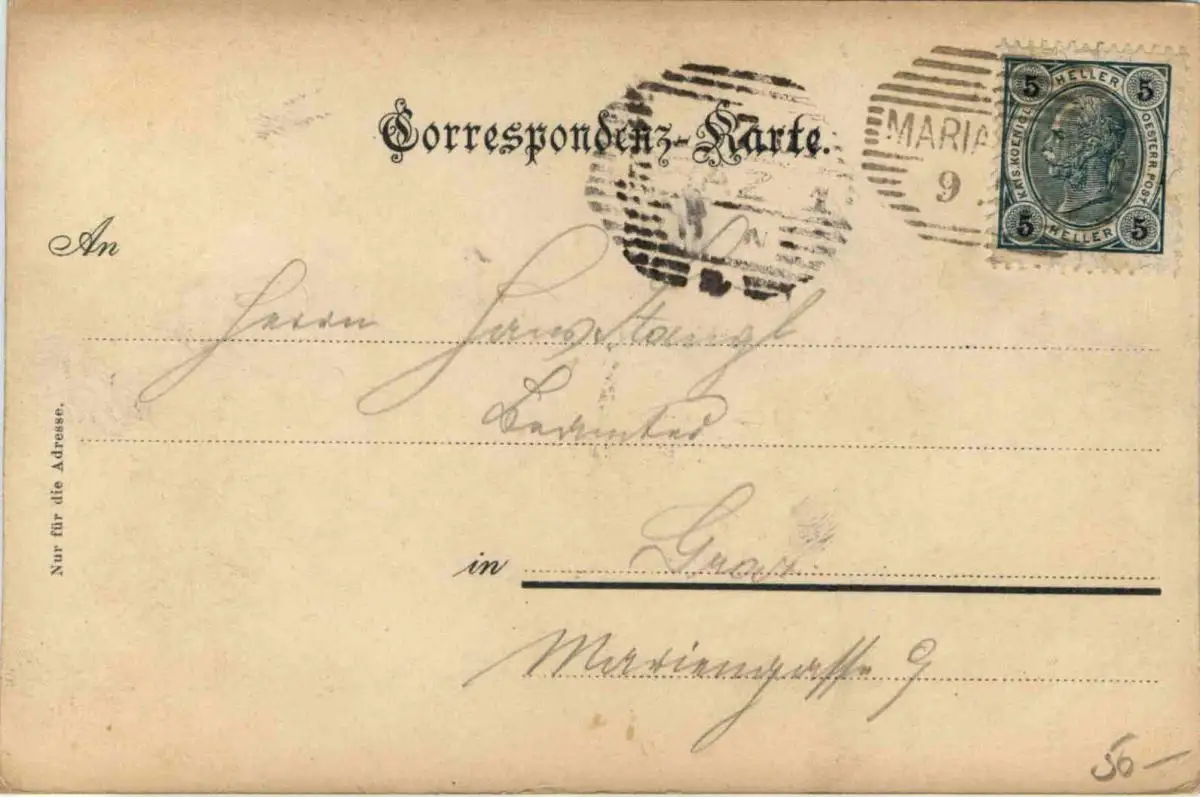 Correspondenz-Karte.
MARIA
9
5 HELLER 5
KAIS. KOENIGL.
OESTERR. POST
5 HELLER 5
An
Herrn Hans Stangl
Beamter
in Graz
Mariengasse 9
Nur für die Adresse.
50-